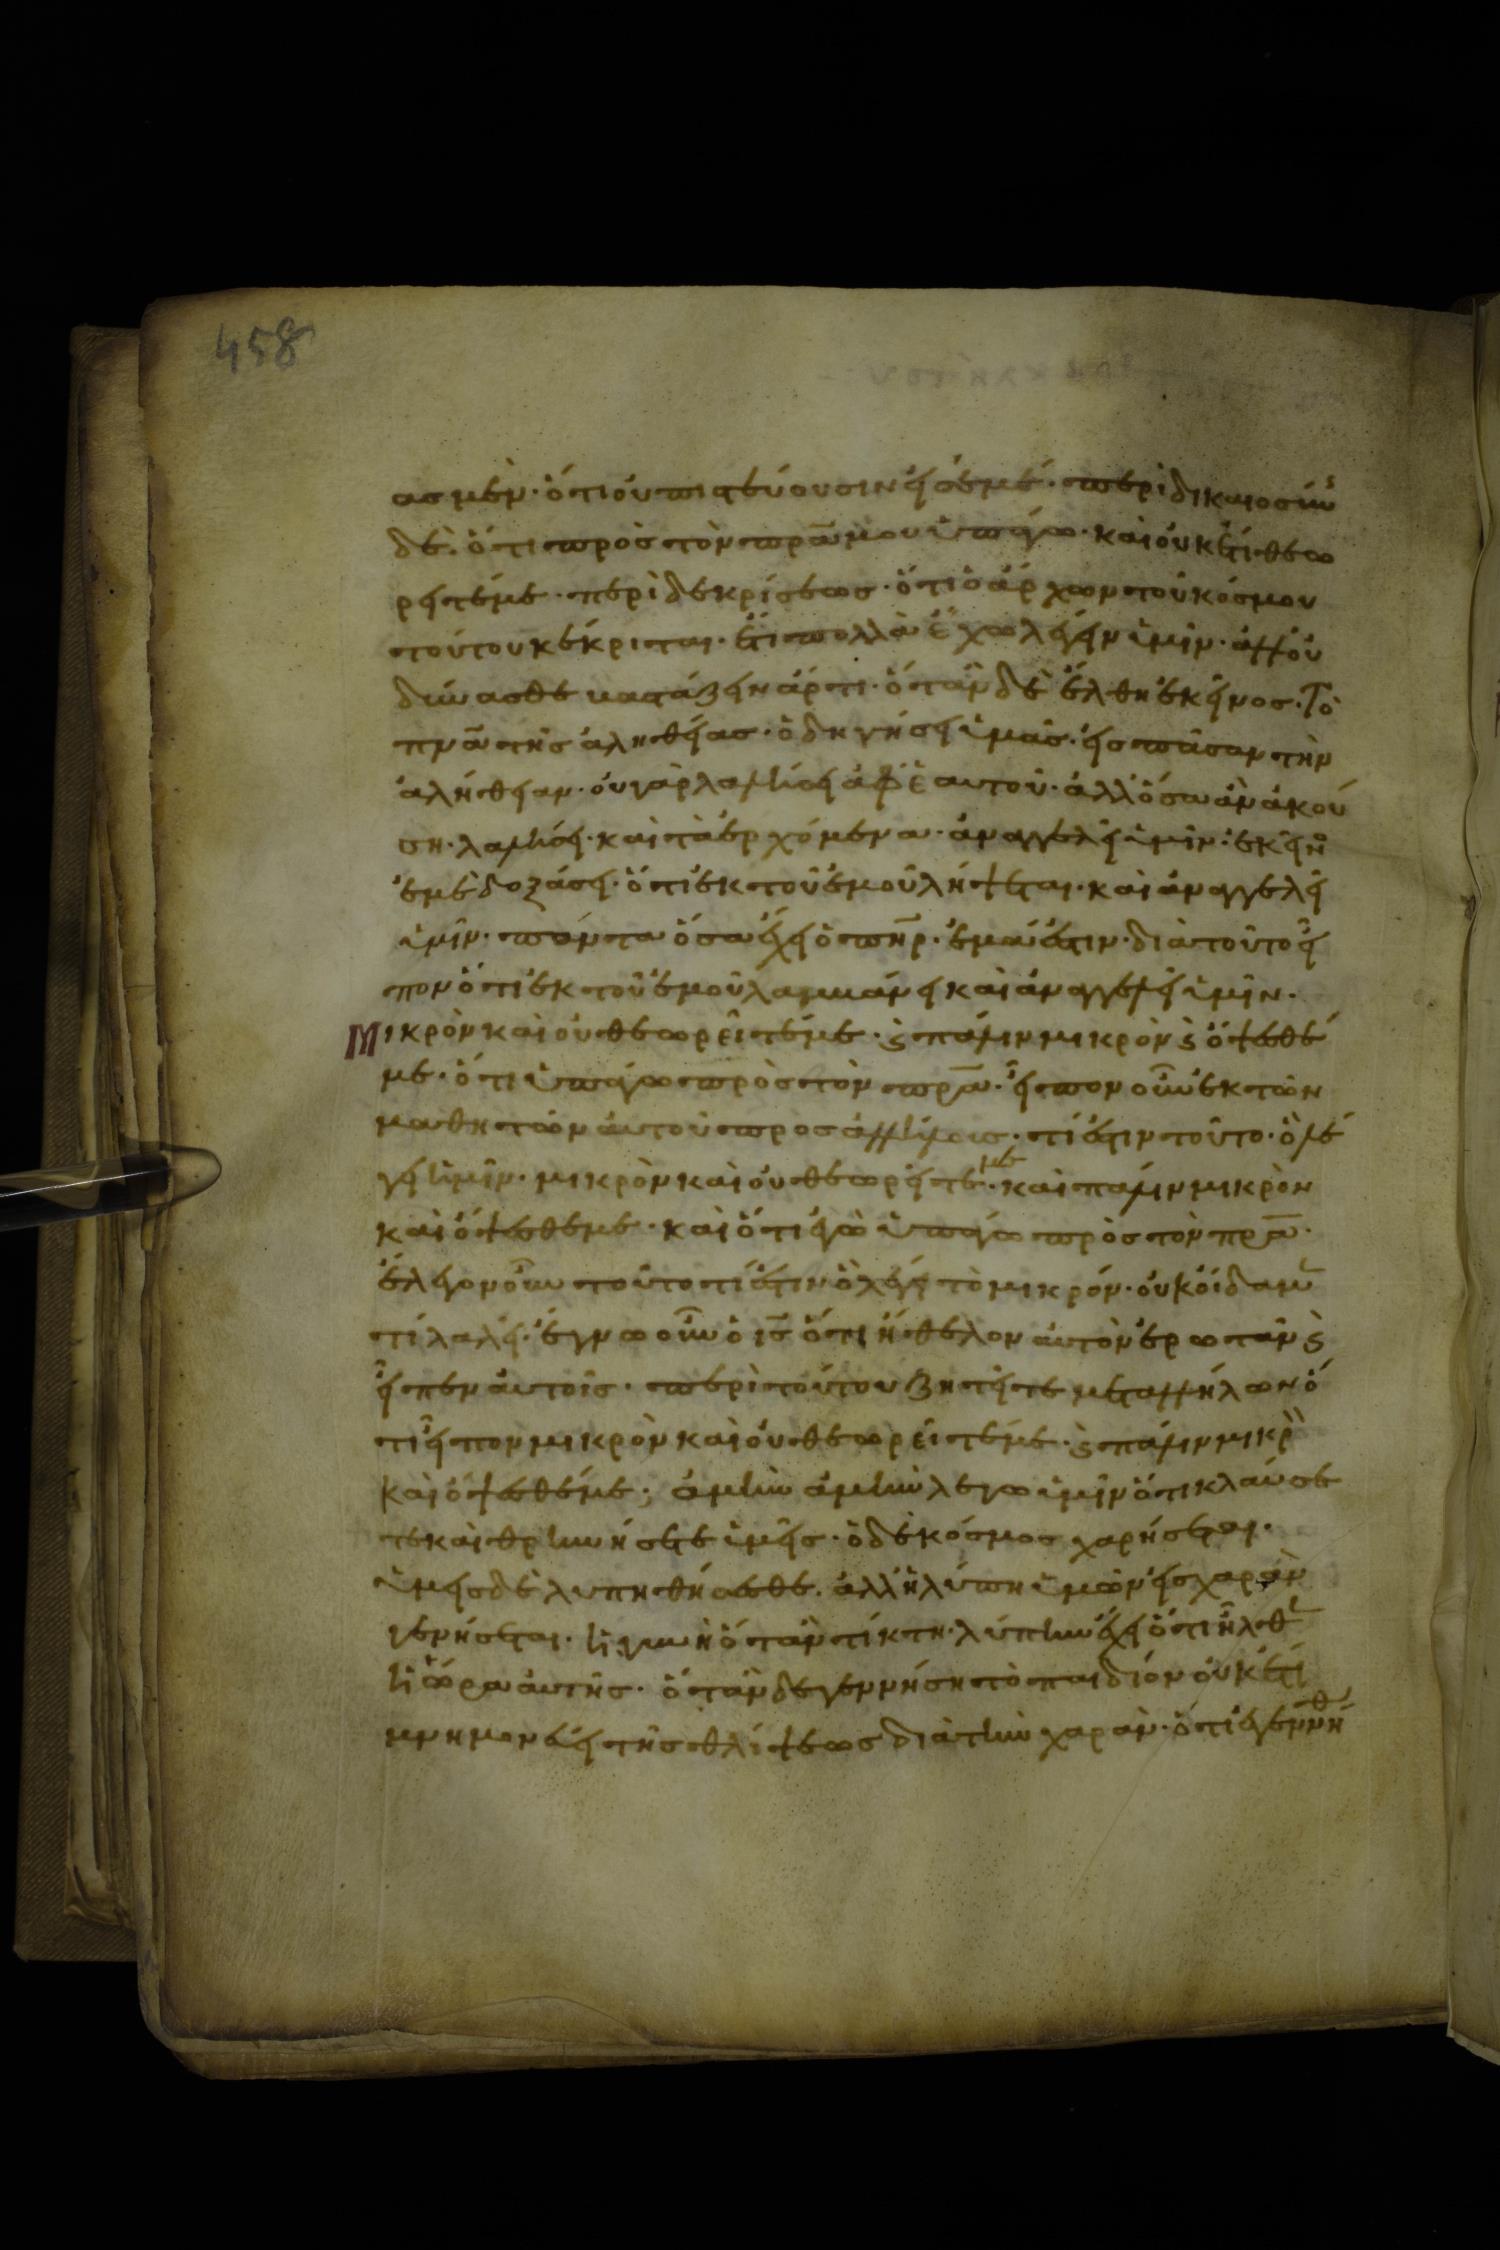 458
ας μεν· ὅτι οὐ πιστεύουσιν εἰς ἐμέ· περὶ δικαιοσύνης
δὲ· ὅτι πρὸς τὸν πρ̅α̅ μου ὑπάγω· καὶ οὐκέτι θεω
ρεῖτέ με· περὶ δε κρίσεως· ὅτι ὁ ἄρχων τοῦ κόσμου
τούτου κέκριται· ἔτι πολλὰ ἔχω λέγειν ὑμῖν· ἀλλ οὐ
δύνασθε βαστάζειν ἄρτι· ὅταν δὲ ἔλθη ἐκεῖνος· Τὸ
πν̅α̅ τῆς ἀληθείας· ὁδηγήσει ὑμᾶς· εἰς πᾶσαν τὴν
ἀλήθειαν· οὐ γὰρ λαλήσει ἀφ ἑαυτοῦ· ἀλλ ὅσα ἂν ἀκού
ση· λαλήσει· καὶ τὰ ἐρχόμενα· ἀναγγελεῖ ὑμῖν· ἐκεῖνος
ἐμὲ δοξάσει· ὅτι ἐκ τοῦ ἐμοῦ λήψεται· καὶ ἀναγγελεῖ
ὑμῖν· πάντα ὅσα ἔχει ὁ π̅η̅ρ̅· ἐμά ἐστιν· διὰ τοῦτο εἶ
πον ὅτι ἐκ τοῦ ἐμοῦ λαμβάνει καὶ ἀναγγελεῖ ὑμῖν·
Μικρὸν καὶ οὐ θεωρεῖτέ με· ϗ πάλιν μικρὸν ϗ ὄψεσθέ
με· ὅτι ὑπάγω πρὸς τὸν πρ̅α̅· εἶπον οὖν ἐκ τῶν
μαθητῶν αὐτοῦ πρὸς ἀλλήλους· τί ἐστιν τοῦτο· ὃ λέ
γει ὑμῖν· μικρὸν καὶ οὐ θεωρεῖτέ με· καὶ πάλιν μικρὸν
καὶ ὄψεσθέ με· καὶ ὅτι ἐγὼ ὑπάγω πρὸς τὸν πρ̅α̅·
ἔλεγον οὖν τοῦτο τί ἐστιν ὃ λέγει τὸ μικρόν· οὐκ οἴδαμεν
τί λαλεῖ· ἔγνω οὖν ὁ ι̅ς̅ ὅτι ἤθελον αὐτὸν ἐρωτᾶν ϗ
εἶπεν αὐτοῖς· περὶ τούτου ζητεῖτε μετ αλλήλων ὅ
τι εἶπον μικρὸν καὶ οὐ θεωρεῖτέ με· ϗ πάλιν μικρὸν
καὶ ὄψεσθέ με; ἀμὴν ἀμὴν λεγω ὑμῖν ὅτι κλαύσε
τε καὶ θρηνήσετε ὑμεῖς· ὁ δὲ κόσμος χαρήσεται·
ὑμεῖς δὲ λυπηθήσεσθε· ἀλλ ἡ λύπη ὑμῶν εἰς χαρὰν
γενήσεται· ἡ γυνὴ ὅταν τίκτη· λύπην ἔχει ὅτι ἦλθεν
ἡ ὥρα αὐτῆς· ὅταν δε γεννήση τὸ παιδίον οὐκέτι
μνημονεύει τῆς θλίψεως διὰ τὴν χαρὰν· ὅτι ἐγεννήθη